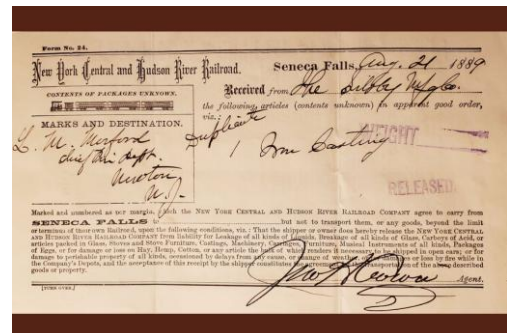 Form No. 24.
New York Central and Hudson River Railroad.
Seneca Falls, Aug. 21 1889
CONTENTS OF PACKAGES UNKNOWN.
Received from The Silsby Mfg Co.
the following articles (contents unknown) in apparent good order,
viz.:
MARKS AND DESTINATION.
Duplicate
L. M.
chief fire dept.
Newton
N. J.
1 Iron Casting
WEIGHT
RELEASED.
Marked and numbered as per margin, which the NEW YORK CENTRAL AND HUDSON RIVER RAILROAD COMPANY agree to carry from
SENECA FALLS to but not to transport them, or any goods, beyond the limit
or terminus of their own Railroad, upon the following conditions, viz.: That the shipper or owner does hereby release the NEW YORK CENTRAL
AND HUDSON RIVER RAILROAD COMPANY from Liability for Leakage of all kinds of Liquids, Breakage of all kinds of Glass, Carboys of Acid, or
articles packed in Glass, Stoves and Stove Furniture, Castings, Machinery, Carriages, Furniture, Musical Instruments of all kinds, Packages
of Eggs, or for damage or loss on Hay, Hemp, Cotton, or any article the bulk of which renders it necessary to be shipped in open cars; or for
damage to perishable property of all kinds, occasioned by delays from any cause, or change of weather, or for damages or loss by fire while in
the Company's Depots, and the acceptance of this receipt by the shipper constitutes the agreement for the transportation of the above described
goods or property.
Agent.
[TURN OVER.]